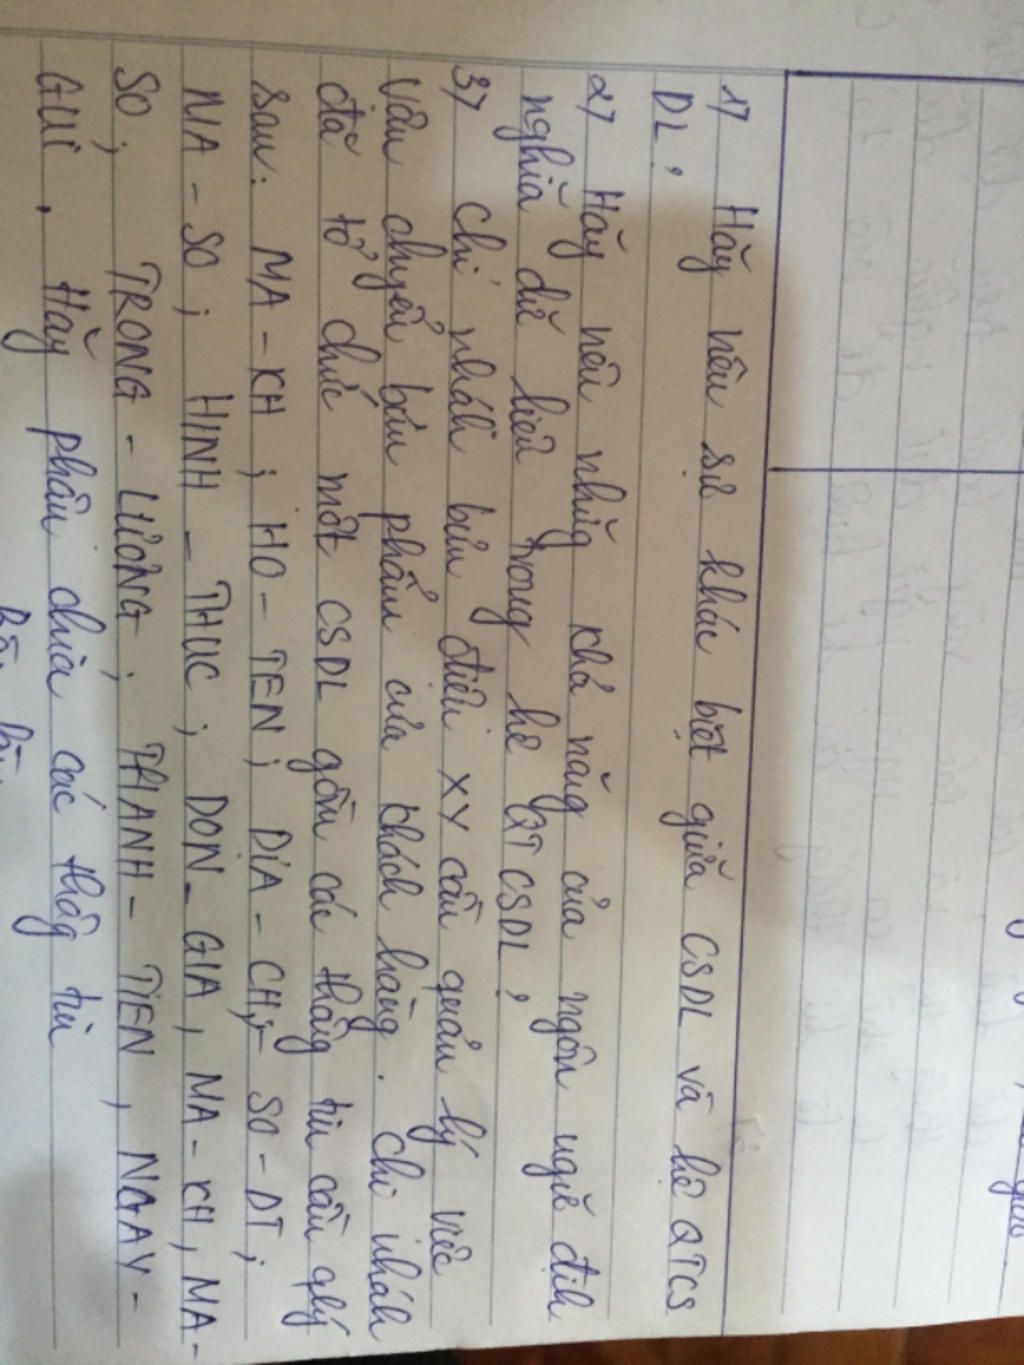 1> Hãy nêu sự khác biệt giữa CSDL và hệ QTCS
DL,
2> Hãy nêu những khả năng của ngôn ngữ định
nghĩa dữ liệu trong hệ QTCSDL,
3> Chi nhánh bưu điện XY cần quản lý việc
vận chuyển bưu phẩm của khách hàng. Chi nhánh
đã tổ chức một CSDL gồm các thông tin cần qlý
sau: MA-KH; HO-TEN; DIA-CHỈ; SO-DT;
MA-SO; HINH-THUC; DON-GIA, MA-KH, MA-
SO; TRONG-LƯỢNG; THANH-TIEN, NGAY-
GUI. Hãy phân chia các thông tin